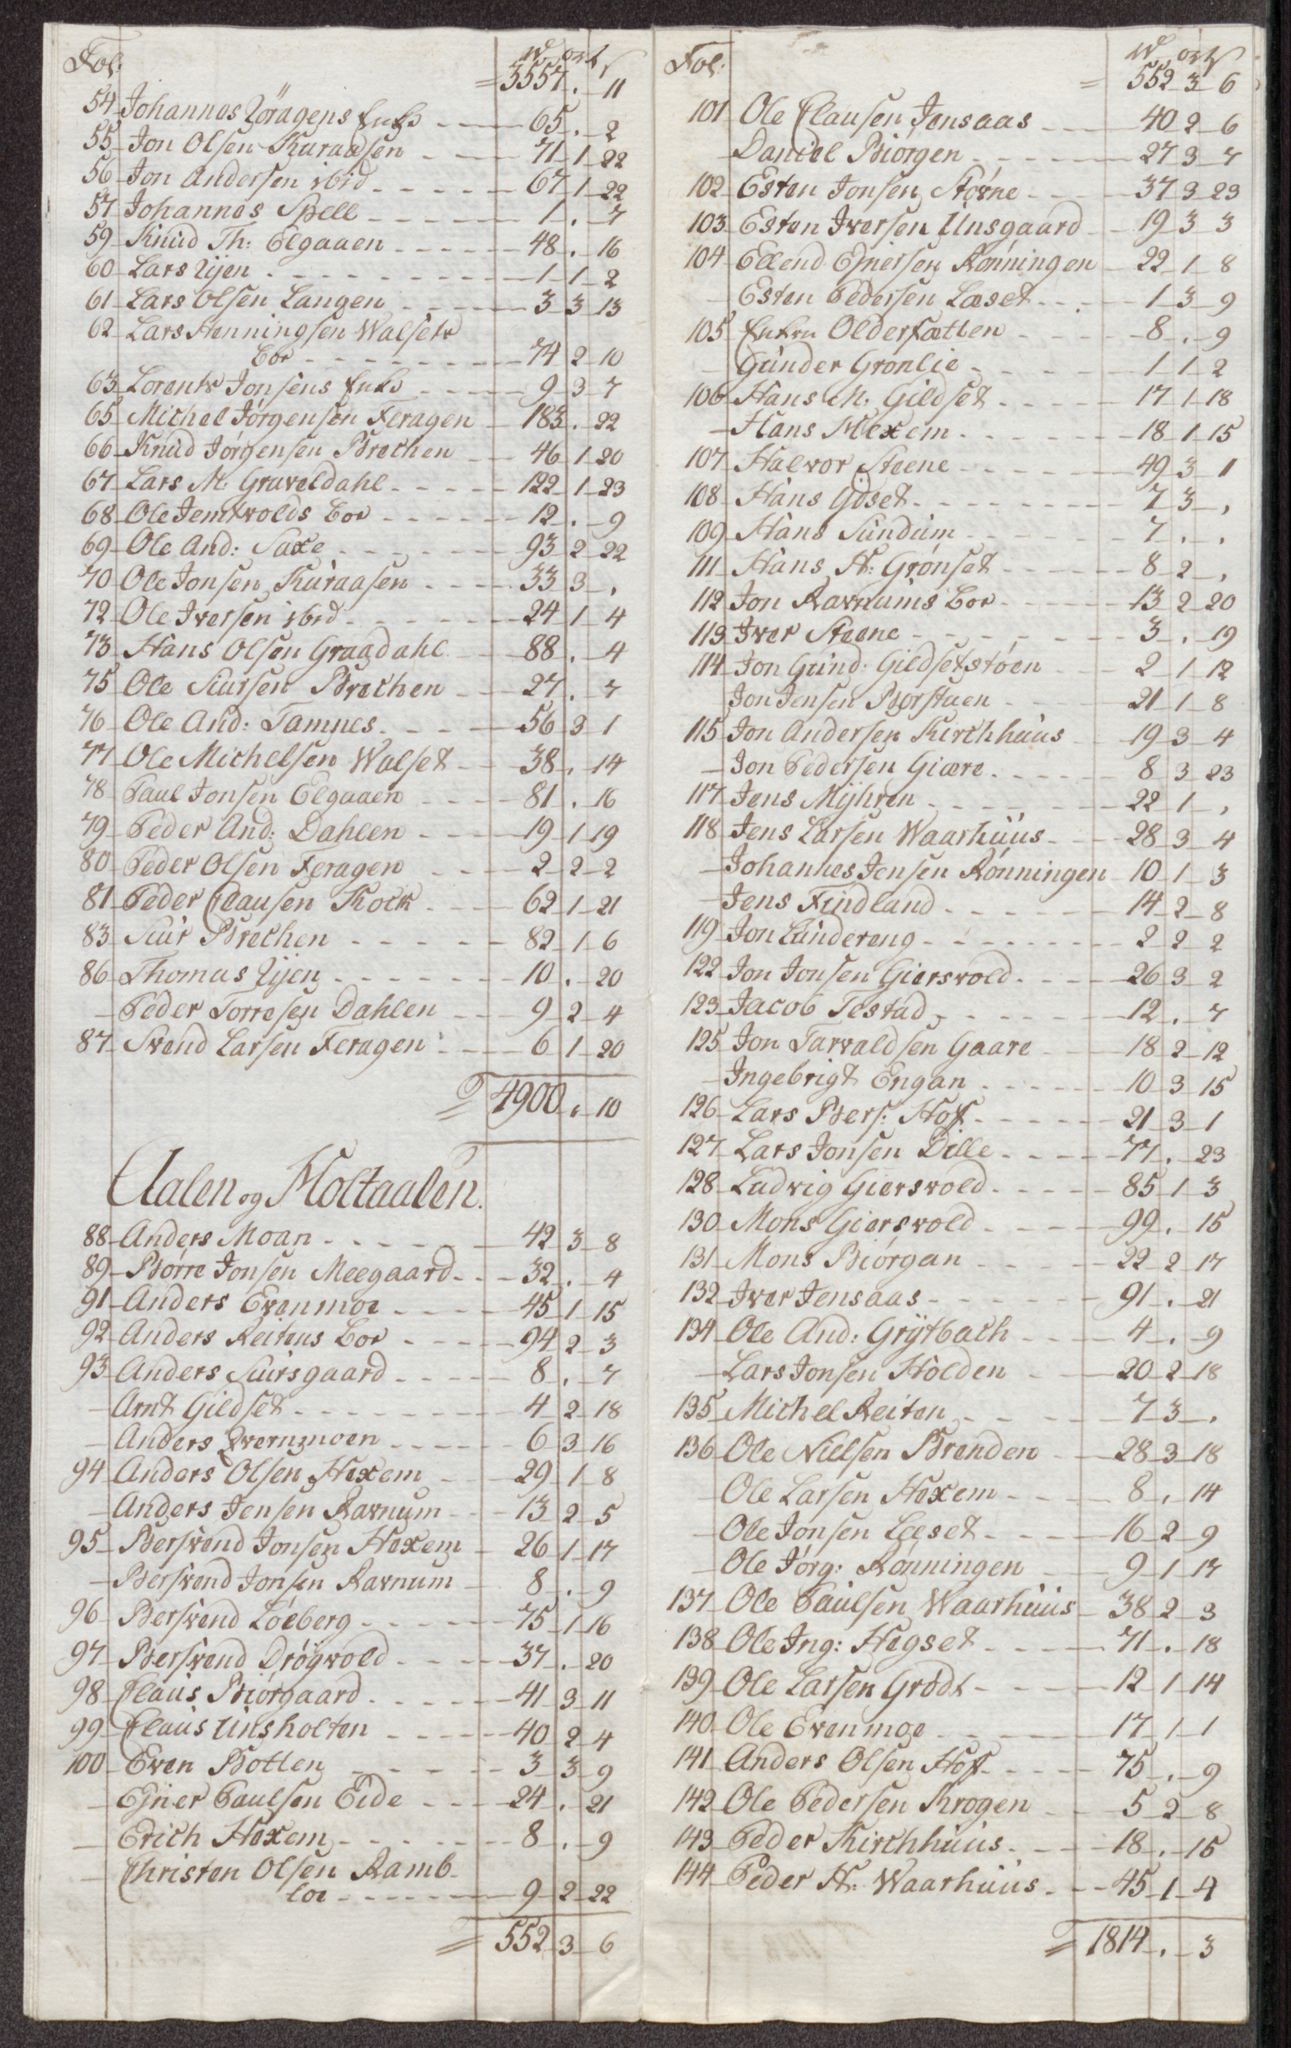 Fol: rd ort ß
= 3557 . 11
54 Johannes Jøragens Enke 65 . 2
55 Jon Olsen Kuraasen 71 1 22
56 Jon Andersen ibid 67 1 22
57 Johannes Spell 1 . 7
59 Knud Th: Elgaaen 48 . 16
60 Lars Uyen 1 1 2
61 Lars Olsen Langen 3 3 13
62 Lars Henningsen Walsets
Boe 74 2 10
63 Lorents Jonsens Enke 9 3 7
65 Michel Jørgensen Feragen 183 . 22
66 Knud Jørgensen Brechen 46 1 20
67 Lars M. Graveldahl 122 1 23
68 Ole Jemtvolds Boe 12 . 9
69 Ole And: Saxe 93 2 22
70 Ole Jonsen Kuraasen 33 3 .
72 Ole Iversen ibid 24 1 4
73 Hans Olsen Graadahl 88 . 4
75 Ole Siursen Brechen 27 . 7
76 Ole And: Tamnes 56 3 1
77 Ole Michelsen Walset 38 . 14
78 Paul Jonsen Elgaaen 81 . 16
79 Peder And: Dahlen 19 1 19
80 Peder Olsen Feragen 2 2 2
81 Peder Clausen Kock 62 1 21
83 Siur Brechen 82 1 6
86 Thomas Uyen 10 . 20
- Peder Torresen Dahlen 9 2 4
87 Svend Larsen Feragen 6 1 20
= 4900 . 10
Aalen og Holtaalen.
88 Anders Moan 42 3 8
89 Børre Jonsen Meegaard 32 . 4
91 Anders Evenmoe 45 1 15
92 Anders Reitens Boe 94 2 3
93 Anders Siursgaard 8 . 7
- Arnt Gildset 4 2 18
- Anders Qvernmoen 6 3 16
94 Anders Olsen Hexem 29 1 8
- Anders Jensen Ravnum 13 2 5
95 Bersvend Jonsen Hexem 26 1 17
- Bersvend Jonsen Ravnum 8 . 9
96 Bersvend Løeberg 75 1 16
97 Bersvend Drøyvold 37 . 20
98 Claus Biørgaard 41 3 11
99 Claus Unsholten 40 2 4
100 Even Botten 3 3 9
- Ejner Paulsen Eide 24 . 21
- Erich Hexem 8 . 9
- Christen Olsen Ramb
loe 9 2 22
= 552 3 6
Fol: rd ort ß
= 552 3 6
101 Ole Clausen Jensaas 40 2 6
- Daniel Biørgen 27 3 7
102 Esten Jonsen Steene 37 3 23
103 Esten Iversen Unsgaard 19 3 3
104 Ellend Ejnersen Rønningen 22 1 8
- Esten Pedersen Læset 1 3 9
105 Enken Oldersletten 8 . 9
- Gunder Grønlie 1 1 2
106 Hans M. Gildset 17 1 18
- Hans Hexem 18 1 15
107 Halvor Steene 49 3 1
108 Hans Gaset 7 3 .
109 Hans Sundum 7 . .
111 Hans H: Grønset 8 2 .
112 Jon Ravnums Boe 13 2 20
113 Iver Steene 3 . 19
114 Jon Gund: Gildsetstøen 2 1 12
Jon Jensen Borstuen 21 1 8
115 Jon Andersen Kirchhuus 19 3 4
- Jon Pedersen Giære 8 3 23
117 Jens Myhren 22 1 .
118 Jens Larsen Waarhuus 28 3 4
- Johannes Jensen Rønningen 10 1 3
- Jens Findland 14 2 8
119 Jon Lundereng 2 2 2
122 Jon Jonsen Giersvold 26 3 2
123 Jacob Testad 12 . 7
125 Jon Tarvaldsen Gaare 18 2 12
- Ingebrigt Engan 10 3 15
126 Lars Bers: Hof 21 3 1
127 Lars Jonsen Dille 77 . 23
128 Ludvig Giersvold 85 1 3
130 Mons Giersvold 99 . 15
131 Mons Biørgan 22 2 17
132 Iver Jensaas 91 . 21
134 Ole And: Grytbach 4 . 9
- Lars Jonsen Holden 20 2 18
135 Michel Reiten 7 3 .
136 Ole Nielsen Brenden 28 3 18
- Ole Larsen Hexem 8 . 14
- Ole Jonsen Læset 16 2 9
- Ole Jørg: Rønningen 9 1 17
137 Ole Paulsen Waarhuus 38 2 3
138 Ole Ing: Hegset 71 . 18
139 Ole Larsen Grødt 12 1 14
140 Ole Evenmoe 17 1 1
141 Anders Olsen Hof 75 . 9
142 Ole Pedersen Krogen 5 2 8
143 Peder Kirchhuus 18 . 15
144 Peder H: Waarhuus 45 1 4
= 1814 . 3